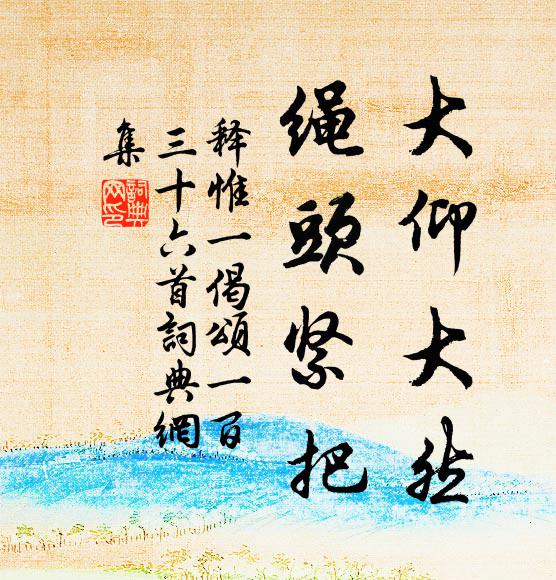 大仰大然
绳頭紧把
释惟一偈頌一百
三十六首詞典網
集
詞典
网印